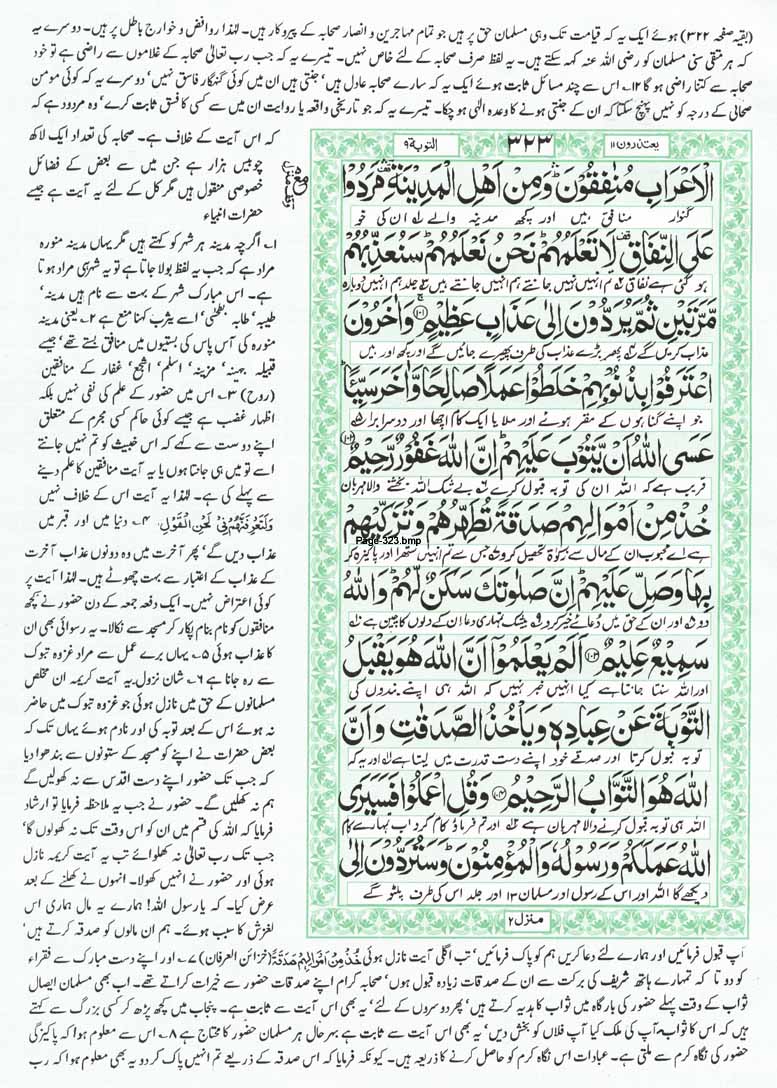 (بقیہ صفحہ ۳۲۲) ہوئے ایک یہ کہ قیامت تک وہی مسلمان حق پر ہیں جو تمام مہاجرین و انصار صحابہ کے پیروکار ہیں۔ لہٰذا روافض و خوارج باطل پر ہیں۔ دوسرے یہ
کہ ہر متقی سنی مسلمان کو رضی اللہ عنہ کہہ سکتے ہیں۔ یہ لفظ صرف صحابہ کے لئے خاص نہیں۔ تیسرے یہ کہ جب رب تعالٰی صحابہ کے غلاموں سے راضی ہے تو خود
صحابہ سے کتنا راضی ہو گا ۱۲؎ اس سے چند مسائل ثابت ہوئے ایک یہ کہ سارے صحابہ عادل ہیں' جنتی ہیں ان میں کوئی گنہگار فاسق نہیں' دوسرے یہ کہ کوئی مومن
صحابی کے درجہ کو نہیں پہنچ سکتا کہ ان کے جنتی ہونے کا وعدہ الٰہی ہو چکا۔ تیسرے یہ کہ جو تاریخی واقعہ یا روایت ان میں سے کسی کا فسق ثابت کرے' وہ مردود ہے کہ
یعتذرون ۱۱
۳۲۳
التوبۃ ۹
الْاَعْرَابِ مُنٰفِقُوْنَ ۛؕ وَمِنْ اَهْلِ الْمَدِيْنَةِ ۛؔ مَرَدُوْا
گنوار منافق ہیں اور کچھ مدینہ والے ان کی خو
عَلَى النِّفَاقِ ۟ لَا تَعْلَمُهُمْ ؕ نَحْنُ نَعْلَمُهُمْ ؕ سَنُعَذِّبُهُمْ
ہو گئی ہے نفاق تم انہیں نہیں جانتے ہم انہیں جانتے ہیں جلد ہم انہیں دوبارہ
مَّرَّتَيْنِ ثُمَّ يُرَدُّوْنَ اِلٰى عَذَابٍ عَظِيْمٍ ۚ﴿۱۰۱﴾ وَاٰخَرُوْنَ
عذاب کریں گے پھر بڑے عذاب کی طرف پھیرے جائیں گے اور کچھ اور ہیں
اعْتَرَفُوْا بِذُنُوْبِهِمْ خَلَطُوْا عَمَلًا صَالِحًا وَّاٰخَرَ سَيِّئًا ؕ
جو اپنے گناہوں کے مقر ہوئے اور ملایا ایک کام اچھا اور دوسرا برا
عَسَى اللّٰهُ اَنْ يَّتُوْبَ عَلَيْهِمْ ؕ اِنَّ اللّٰهَ غَفُوْرٌ رَّحِيْمٌ ﴿۱۰۲﴾
قریب ہے کہ اللہ ان کی توبہ قبول کرے بے شک اللہ بخشنے والا مہربان
خُذْ مِنْ اَمْوَالِهِمْ صَدَقَةً تُطَهِّرُهُمْ وَتُزَكِّيْهِمْ
Page-323.bmp
ہے اے محبوب ان کے مال میں سے زکوٰۃ تحصیل کرو جس سے تم انہیں ستھرا اور پاکیزہ کر
بِهَا وَصَلِّ عَلَيْهِمْ ؕ اِنَّ صَلٰوتَكَ سَكَنٌ لَّهُمْ ؕ وَاللّٰهُ
دو اور ان کے حق میں دعائے خیر کرو بیشک تمہاری دعا ان کے دلوں کا چین ہے
سَمِيْعٌ عَلِيْمٌ ﴿۱۰۳﴾ اَلَمْ يَعْلَمُوْۤا اَنَّ اللّٰهَ هُوَ يَقْبَلُ
اور اللہ سنتا جانتا ہے کیا انہیں خبر نہیں کہ اللہ ہی اپنے بندوں کی
التَّوْبَةَ عَنْ عِبَادِهٖ وَيَاْخُذُ الصَّدَقٰتِ وَاَنَّ
توبہ قبول کرتا اور صدقے خود اپنے دست قدرت میں لیتا ہے اور یہ کہ
اللّٰهَ هُوَ التَّوَّابُ الرَّحِيْمُ ﴿۱۰۴﴾ وَقُلِ اعْمَلُوْا فَسَيَرَى
اللہ ہی توبہ قبول کرنے والا مہربان ہے اور تم فرماؤ کام کرو اب تمہارے کام
اللّٰهُ عَمَلَكُمْ وَرَسُوْلُهٗ وَالْمُؤْمِنُوْنَ ؕ وَسَتُرَدُّوْنَ اِلٰى
دیکھے گا اللہ اور اس کے رسول اور مسلمان ۱۳ اور جلد اس کی طرف پلٹو گے
منزل ۲
کہ اس آیت کے خلاف ہے۔ صحابہ کی تعداد ایک لاکھ
چوبیس ہزار ہے جن میں سے بعض کے فضائل
خصوصی منقول ہیں مگر کل کے لئے یہ آیت ہے جیسے
حضرات انبیاء
۱؎ اگرچہ مدینہ ہر شہر کو کہتے ہیں مگر یہاں مدینہ منورہ
مراد ہے کہ جب یہ لفظ بولا جاتا ہے تو یہ شہر ہی مراد ہوتا
ہے۔ اس مبارک شہر کے بہت سے نام ہیں مدینہ'
طیبہ' طابہ' بطحیٰ' اسے یثرب کہنا منع ہے ۲؎ یعنی مدینہ
منورہ کی آس پاس کی بستیوں میں منافق بستے تھے' جیسے
قبیلہ جہینہ' مزینہ' اسلم' اشجع' غفار کے منافقین
(روح) ۳؎ اس میں حضور کے علم کی نفی نہیں بلکہ
اظہار غضب ہے جیسے کوئی حاکم کسی مجرم کے متعلق
اپنے دوست سے کہے کہ اس خبیث کو تم نہیں جانتے
اسے تو میں ہی جانتا ہوں یا یہ آیت منافقین کا علم دینے
سے پہلے کی ہے۔ لہٰذا یہ آیت اس کے خلاف نہیں
وَلَتَعْرِفَنَّهُمْ فِيْ لَحْنِ الْقَوْلِ ۴؎ دنیا میں اور قبر میں
عذاب دیں گے' پھر آخرت میں وہ دونوں عذاب آخرت
کے عذاب کے اعتبار سے بہت چھوٹے ہیں۔ لہٰذا آیت پر
کوئی اعتراض نہیں۔ ایک دفعہ جمعہ کے دن حضور نے کچھ
منافقوں کو نام بنام پکار کر مسجد سے نکالا۔ یہ رسوائی بھی ان
کا عذاب ہوئی ۵؎ یہاں برے عمل سے مراد غزوہ تبوک
سے رہ جانا ہے ۶؎ شان نزول۔ یہ آیت کریمہ ان مخلص
مسلمانوں کے حق میں نازل ہوئی جو غزوہ تبوک میں حاضر
نہ ہوئے اس کے بعد توبہ کی اور نادم ہوئے یہاں تک کہ
بعض حضرات نے اپنے کو مسجد کے ستونوں سے بندھوا دیا
کہ جب تک حضور اپنے دست اقدس سے نہ کھولیں گے
ہم نہ کھلیں گے۔ حضور نے جب یہ ملاحظہ فرمایا تو ارشاد
فرمایا کہ اللہ کی قسم میں ان کو اس وقت تک نہ کھولوں گا'
جب تک رب تعالٰی نہ کھلوائے تب یہ آیت کریمہ نازل
ہوئی اور حضور نے انہیں کھولا۔ انہوں نے کھلنے کے بعد
عرض کیا۔ کہ یا رسول اللہ! ہمارے یہ مال ہماری اس
لغزش کا سبب ہوئے۔ ہم ان مالوں کو صدقہ کرتے ہیں'
آپ قبول فرمائیں اور ہمارے لئے دعا کریں ہم کو پاک فرمائیں' تب اگلی آیت نازل ہوئی خُذْ مِنْ اَمْوَالِهِمْ صَدَقَةً (خزائن العرفان) ۷؎ اور اپنے دست مبارک سے فقراء
کو دو تا کہ تمہارے ہاتھ شریف کی برکت سے ان کے صدقات زیادہ قبول ہوں' صحابہ کرام اپنے صدقات حضور سے خیرات کراتے تھے۔ اب بھی مسلمان ایصال
ثواب کے وقت پہلے حضور کی بارگاہ میں ثواب کا ہدیہ کرتے ہیں' پھر دوسروں کے لئے' یہ بھی اس آیت سے ثابت ہے۔ پنجاب میں کچھ پڑھ کر کسی بزرگ سے کہتے
ہیں کہ اس کا ثواب آپ کی ملک کیا آپ فلاں کو بخش دیں' یہ بھی اس آیت سے ثابت ہے بہرحال ہر مسلمان حضور کا محتاج ہے ۸؎ اس سے معلوم ہوا کہ پاکیزگی
حضور کی نگاہ کرم سے ملتی ہے۔ عبادات اس نگاہ کرم کو حاصل کرنے کا ذریعہ ہیں۔ کیونکہ فرمایا کہ اس صدقہ کے ذریعے تم انہیں پاک کر دو یہ بھی معلوم ہوا کہ رب